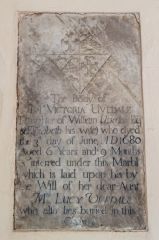 The Body of
VICTORIA UVEDALE
Daughter of William Uvedale
& Elizabeth his wife who dyed
the 3d day of June AD 1680
Aged 6 Years and 9 Moths
interred under this Marbl
which is laid upon his by
the Will of her dear Aunt
Mrs LUCY UVEDALE
who also lies buried in this